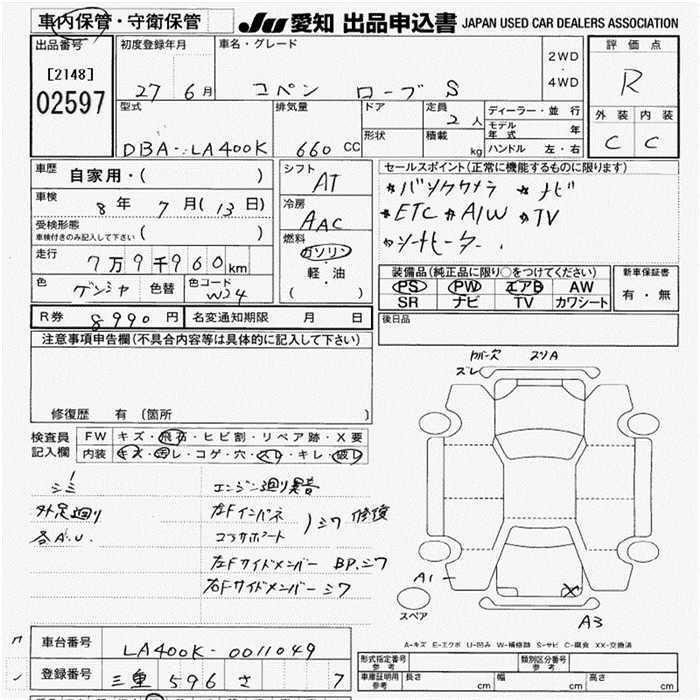 車内保管・守衛保管 JU 愛知 出品申込書 JAPAN USED CAR DEALERS ASSOCIATION
出品番号 初度登録年月 車名・グレード 2WD ・ 4WD 評価点
[2148] 02597 27 6月 コペン ローブ S R
型式 排気量 ドア 定員 2人 ディーラー・並行 外装 内装
DBA-LA400K 660 CC 形状 積載 kg モデル年式 年 C C
ハンドル 左・右
車歴 自家用・( ) シフト AT セールスポイント(正常に機能するものに限ります)
車検 8年 7月(13日) 冷房 AAC *バックカメラ *ナビ
受検形態 車検付きのみ記入して下さい ( ) *ETC *A/W *TV
走行 7万9千960km 燃料 ガソリン・軽・油 ( ) *シートヒーター
色 ゲンシャ 色替 色コード W24
装備品(純正品に限り○をつけてください) 新車保証書
PS PW エアB AW 有・無
SR ナビ TV カワシート
R券 8990円 名変通知期限 月 日 後日品
注意事項申告欄(不具合内容等は具体的に記入して下さい)
カバー欠 スリA
ズレ
修復歴 有 (箇所 )
検査員記入欄 FW キズ・飛石・ヒビ割・リペア跡・X要
内装 キズ・汚レ・コゲ・穴・スレ・キレ・破レ
シミ エンジン廻り異音
外足廻り 左Fインパネ
各A.U. コアサポート シワ 修復
左Fサイドメンバー BP.シワ
右Fサイドメンバーシワ
A1 X
スペア A3
A-キズ E-エクボ U-凹み W-補修跡 S-サビ C-腐食 XX-交換済
車台番号 LA400K-0011049
登録番号 三重 596 さ 7
形式指定番号 参考 類別区分番号 参考
車庫証明用 参考 長さ cm 幅 cm 高さ cm